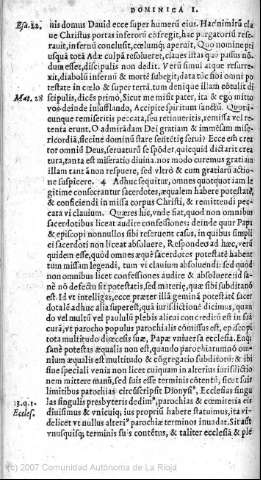 DOMINICA I.
Esa. 22. nis domus David ecce super humerũ eius. Hac nimirũ cla
ue Christus portas inferorũ cõfregit, hac purgatoriũ rese-
rauit, infernũ conclusit, cœlumq; aperuit. Quo nomine pri
usquā tota Adæ culpa resolueret, claues istas quo paulis nõ-
dum esset, discipulis non dedit. Verũ simul atque resurre-
xit, diabolũ infernũ & mortẽ subegit, data tũc sibi omni po
testate in cœlo & super terrā, tum denique illam cõtulit di
Mat. 28 scipulis, dicẽs primò, Sicut me misit pater, ita & ego mitto
vos: deinde insufflando, Accipite spiritum sanctũ. Quorũ-
cunque remiseritis peccata, seu retinueritis, remissa vel re
tenta erunt. O admirādam Dei gratiam & immẽsam mise-
ricordiā,
tor omniũ Deus, seruaturũ se spõdet, quicquid dictarit crea
tura, tanta est miseratio diuina. nos modo curemus gratiam
illam tant à non respuere, sed vltrò & cum gratiarũ actio-
ne suspicere. 4 Adhuc sequitur, omnes quotquot iam le
gitime consecrantur sacerdotes, æqualem habere potestatẽ,
& conficiendi in missa corpus Christi, & remittendi pec-
cata vi clauium. Quæres hîc, vnde fiat, quod non omnibus
sacerdotibus liceat audire confessiones: deinde quur Papæ
& episcopi nonnullos sibi referuent casus, in quibus simpli
ci sacerdoti non liceat absoluere. Respondeo ad hæc, verũ
quidem esse, quòd omnes æquè sacerdotes potestatẽ habent
tum missam legendi, tum vi clauium absoluendi: sed quòd
non omnibus licet confessiones audire & absoluere: id sa-
nè nõ defectu fit potestatis, sed materiæ, quæ sibi subditā nõ
est. Id vt intelligas, ecce præter illā geminā potestatẽ sacer
dotalẽ adhuc alia superest, quā iurisdictionẽ dicimus, quan
do vel multũ vel paululũ plebis alicui cum creditũ est in sua
curā, vt parocho populus parochialis cõmissus est, episcopi
tota multitudo diœcesis suæ, Papæ vniuersa ecclesia. Enq;
sanè potestas æqualis non est, quando parochianorum nõ om-
nium æqualis est multitudo & congregatio subditorũ: & ibi
siue speciali venia non licet cuiquam in alterius iurisdictio
nem mittere manũ, sed suis esse terminis cõtẽtũ, sicut suis
limitibus parochias circũscripsit Dionys⁹, Ecclesias singu
13.q.1. las singulis presbyteris dedim⁹, parochias & cœmiteria eis
Eccles. diuisimus & vnicuiq; ius propriũ habere statuimus, ita vi-
delicet vt nullus alteri⁹ parochiæ terminos inuadat. Sit aũt
vnusquisq; terminis suis contẽtus, & taliter ecclesiã & ple
(c) 2007 Comunidad Autónoma de La Rioja